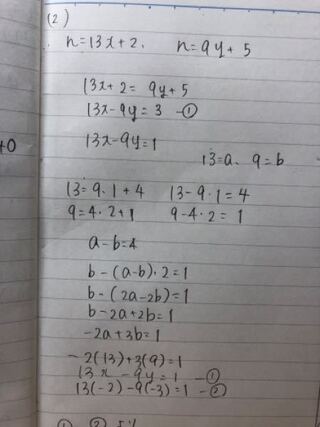 (2)
n=13x+2, n=9y+5
13x+2=9y+5
13x-9y=3 -①
13x-9y=1
13=a、9=b
13=9・1+4 13-9・1=4
9=4・2+1 9-4・2=1
a-b=4
b-(a-b)・2=1
b-(2a-2b)=1
b-2a+2b=1
-2a+3b=1
-2(13)+3(9)=1
13x-9y=1 -①
13(-2)-9(-3)=1 -②